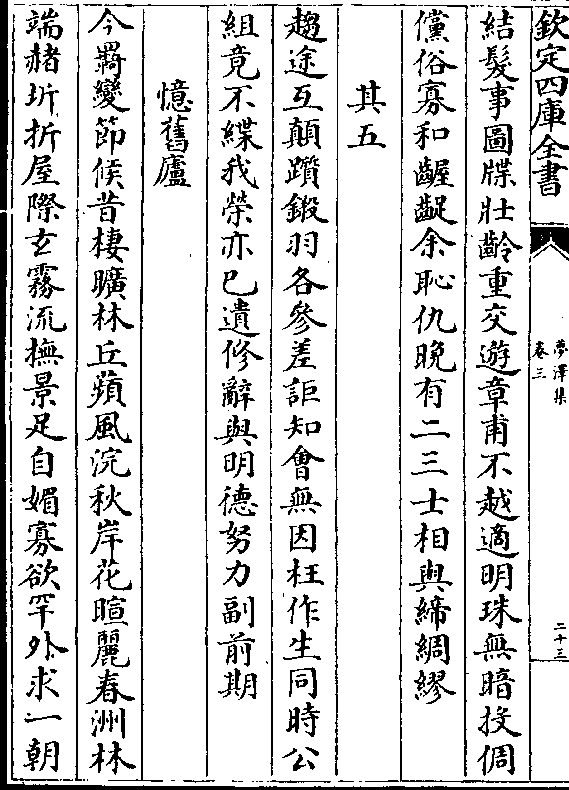 欽定四庫全書
夢澤集
卷三
二十三
結髮事圖牒壯齡重交遊章甫不越適明珠無暗投倜
儻俗寡和齷齪余恥仇晚有二三士相與締綢繆
其五
趨途互顛躓鍛羽各參差詎知會無因枉作生同時公
組竟不緤我榮亦已遺修辭與明德努力副前期
憶舊廬
今羇變節候昔棲曠林丘蘋風浣秋岸花暄麗春洲林
端赭圻折屋際玄霧流撫景足自媚寡欲罕外求一朝